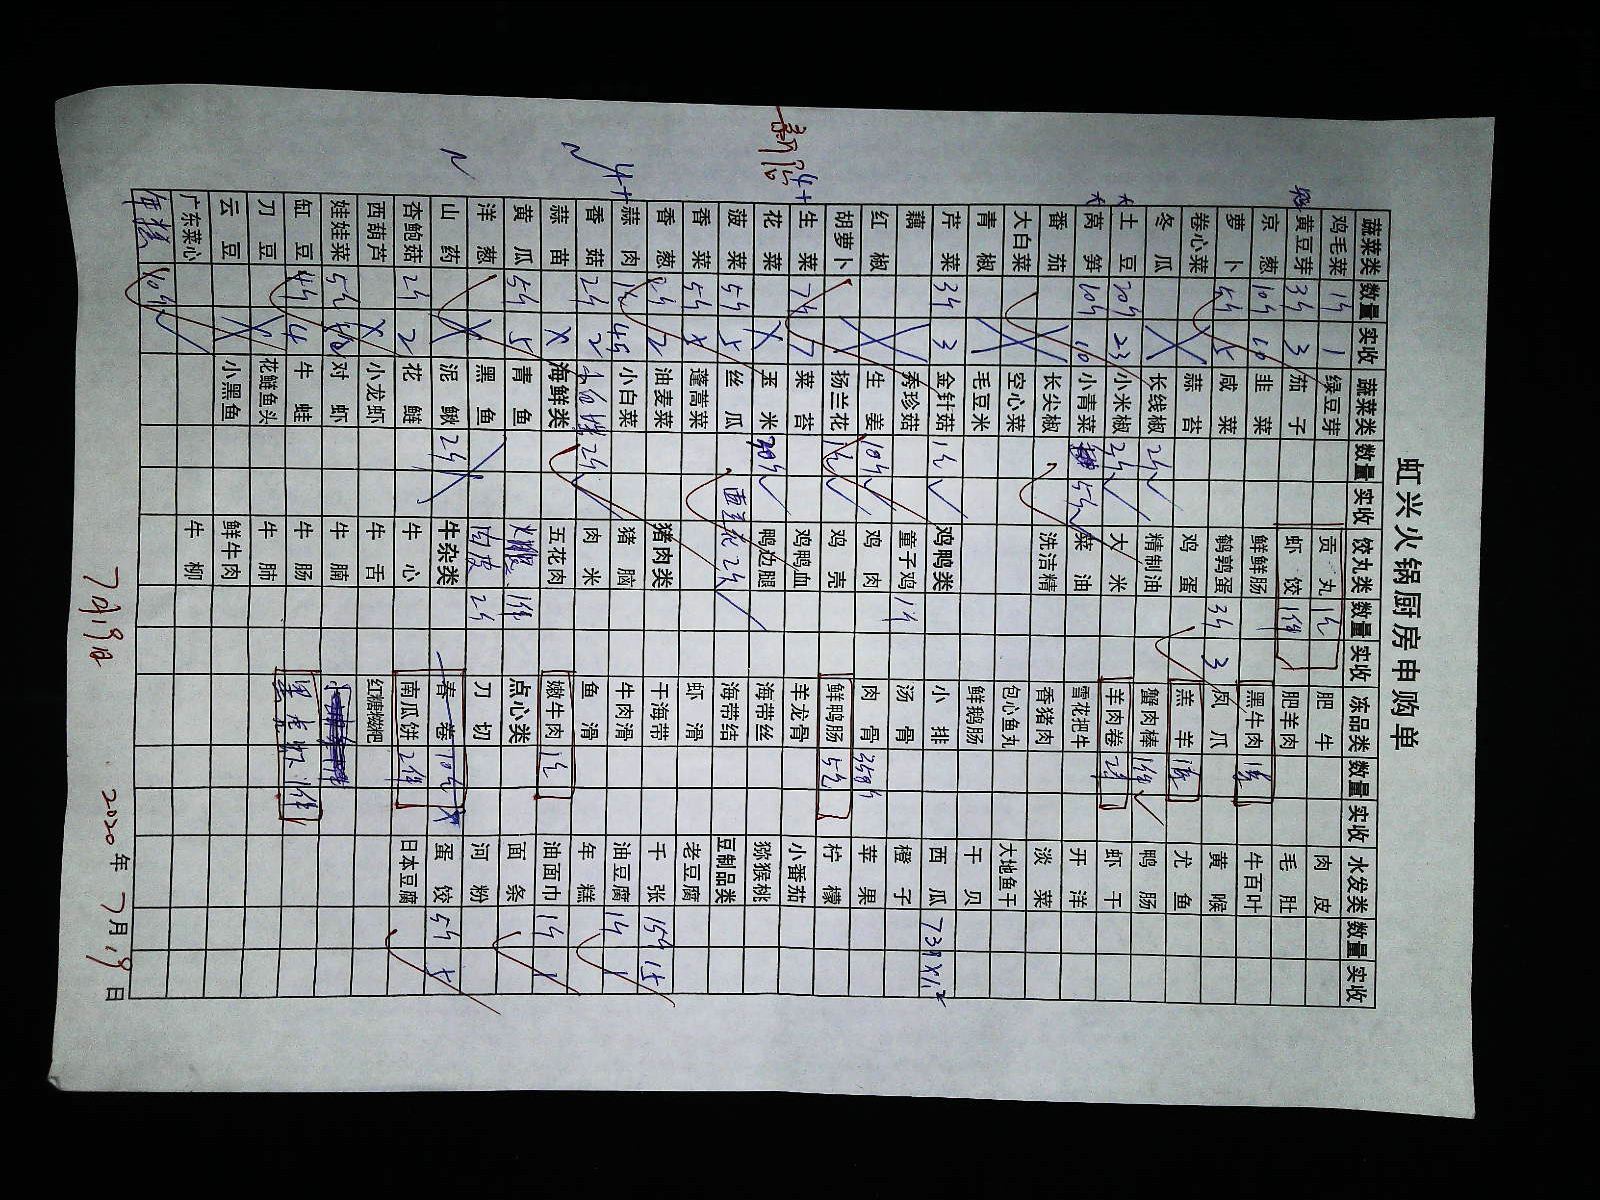 虹兴火锅厨房申购单
蔬菜类 数量 实收 蔬菜类 数量 实收 饺丸类 数量 实收 冻品类 数量 实收 水发类 数量 实收
鸡毛菜 1斤 1 绿豆芽 贡丸 1包 肥牛 肉皮
黄豆芽 3斤 3 茄子 虾饺 1件 肥羊肉 毛肚
京葱 10斤 10 韭菜 鲜鲜肠 黑牛肉 牛百叶
萝卜 5斤 5 咸菜 鹌鹑蛋 3斤 3 凤爪 黄喉
卷心菜 蒜苔 鸡蛋 羔羊 尤鱼
冬瓜 长线椒 2斤 精制油 蟹肉棒 1件 鸭肠
土豆 20斤 23 小米椒 2斤 大米 羊肉卷 2件 虾干
莴笋 10斤 10 小青菜 5斤 菜油 雪花把牛 开洋
番茄 长尖椒 洗洁精 香猪肉 淡菜
大白菜 空心菜 包心鱼丸 大地鱼干
青椒 毛豆米 鲜鹅肠 干贝
芹菜 3斤 3 金针菇 1包 鸡鸭类 小排 西瓜 73斤
藕 秀珍菇 童子鸡 1斤 汤骨 橙子
红椒 生姜 10斤 鸡肉 肉骨 苹果
胡萝卜 扬兰花 鸡壳 鲜鸭肠 5包 柠檬
新店 4+ 生菜 7斤 7 菜苔 鸡鸭血 羊龙骨 小番茄
花菜 玉米 20斤 鸭边腿 海带丝 猕猴桃
菠菜 5斤 5 丝瓜 西兰花 2斤 海带结 豆制品类
香菜 5斤 蓬蒿菜 虾滑 老豆腐
香葱 2斤 2 油麦菜 猪肉类 干海带 千张 15斤 15
4+ 蒜肉 小白菜 猪脑 牛肉滑 油豆腐 1斤
香菇 2斤 2 2斤 肉米 鱼滑 年糕
蒜苗 海鲜类 五花肉 嫩牛肉 1包 油面巾 1斤
黄瓜 5斤 5 青鱼 火腿 1件 点心类 面条
洋葱 黑鱼 肉皮 2斤 刀切 河粉
山药 泥鳅 2斤 牛杂类 春卷 蛋饺 5斤
杏鲍菇 2斤 2 花鲢 牛心 南瓜饼 2件 日本豆腐
西葫芦 小龙虾 牛舌 红糖糍粑
娃娃菜 5斤 对虾 牛腩
缸豆 4斤 4 牛蛙 牛肠 黑虎虾 1件
刀豆 花鲢鱼头 牛肺
云豆 小黑鱼 鲜牛肉
广东菜心 牛柳
年糕 10斤
7月19日 2020年7月19日